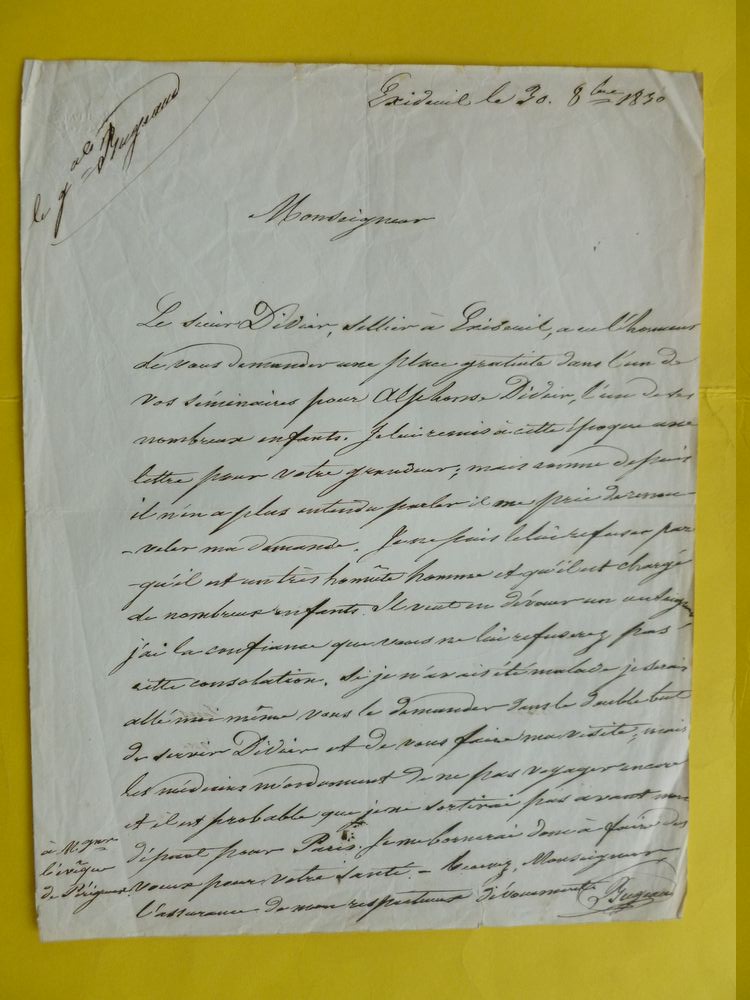 le g^al Bugeaud
Exideuil le 30. 8^bre 1830
Monseigneur
Le sieur Didier, sellier à Exideuil, a eu l'honneur
de vous demander une place gratuite dans l'un de
vos séminaires pour Alphonse Didier, l'un de ses
nombreux enfants. Je lui remis à cette époque une
lettre pour votre grandeur; mais comme depuis
il n'en a plus entendu parler il me prie de renou
-veler ma demande. Je ne puis le lui refuser par
qu'il est un très honnête homme et qu'il est chargé
de nombreux enfants. Il veut en dévouer un au
j'ai la confiance que vous ne lui refuserez pas
cette consolation. Si je n'avais été malade je serais
allé moi même vous le demander dans le double but
de servir Didier et de vous faire ma visite; mais
les médecins m'ordonnent de ne pas voyager encore
et il est probable que je ne sortirai pas avant mon
départ pour Paris. Je me bornerai donc à faire des
vœux pour votre santé. - Recevez, Monseigneur
l'assurance de mon respectueux dévouement Bugeaud
à M.gneur
l'évêque
de Périgueux